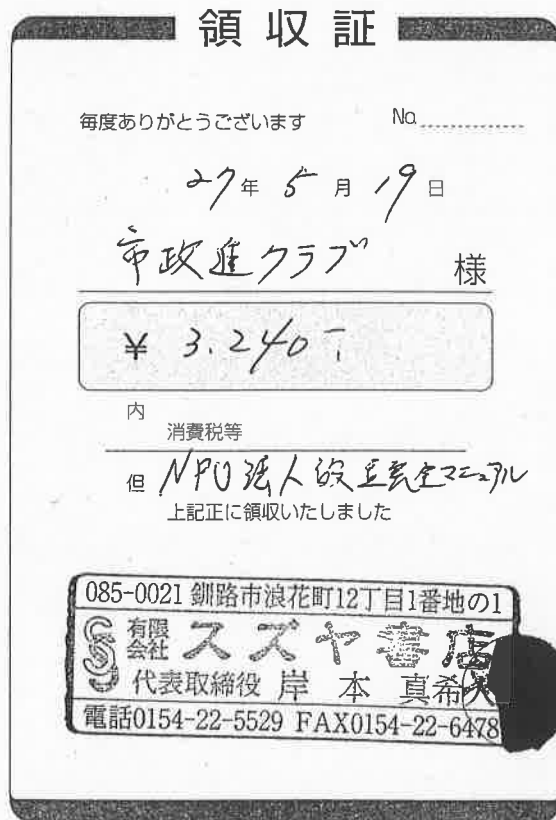 領収証
毎度ありがとうございます No.
27年 5月 19日
市政進クラブ 様
¥ 3.240-
内
消費税等
但 NPO法人設立完全マニュアル
上記正に領収いたしました
085-0021 釧路市浪花町12丁目1番地の1
有限会社 スズヤ書店
代表取締役 岸本 真希
電話0154-22-5529 FAX0154-22-6478